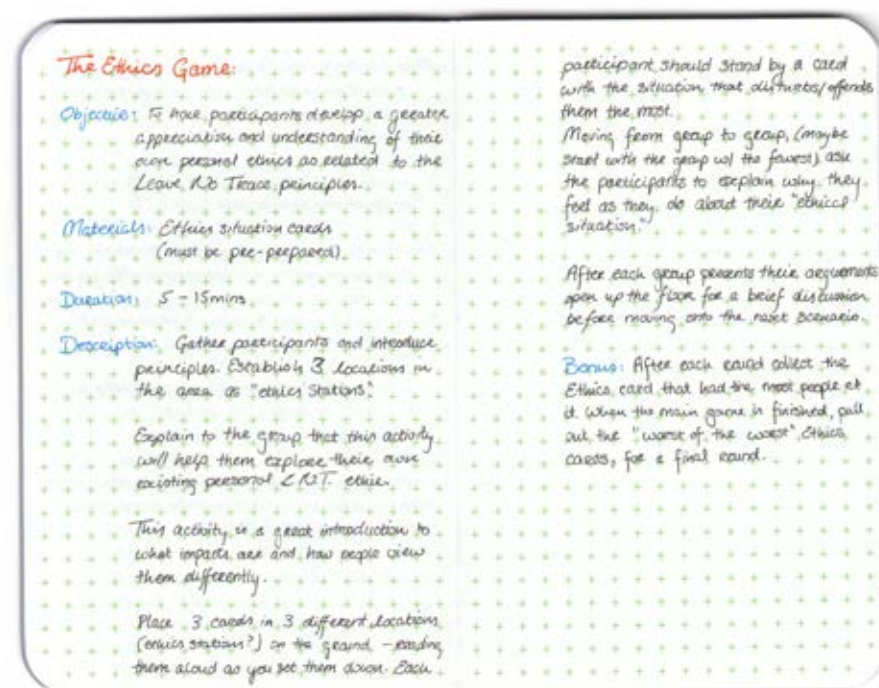 The Ethics Game:
Objective: To have participants develop a greater
appreciation and understanding of their
own personal ethics as related to the
Leave No Trace principles.
Materials: Ethics situation cards
(must be pre-prepared)
Duration: 5 - 15mins
Description: Gather participants and introduce
principles. Establish 3 locations in
the area as "ethics stations".
Explain to the group that this activity
will help them explore their own
existing personal LNT. ethic.
This activity is a great introduction to
what impacts are and how people view
them differently.
Place 3 cards in 3 different locations
(ethics stations?) on the ground - reading
them aloud as you set them down. Each
participant should stand by a card
with the situation that disturbs/offends
them the most.
Moving from group to group, (maybe
start with the group w/ the fewest) ask
the participants to explain why they
feel as they do about their "ethical
situation."
After each group presents their arguements
open up the floor for a brief discussion
before moving onto the next scenario.
Bonus: After each round collect the
Ethics card that had the most people at
it. When the main game is finished, pull
out the "worst of the worst" Ethics
cards, for a final round.